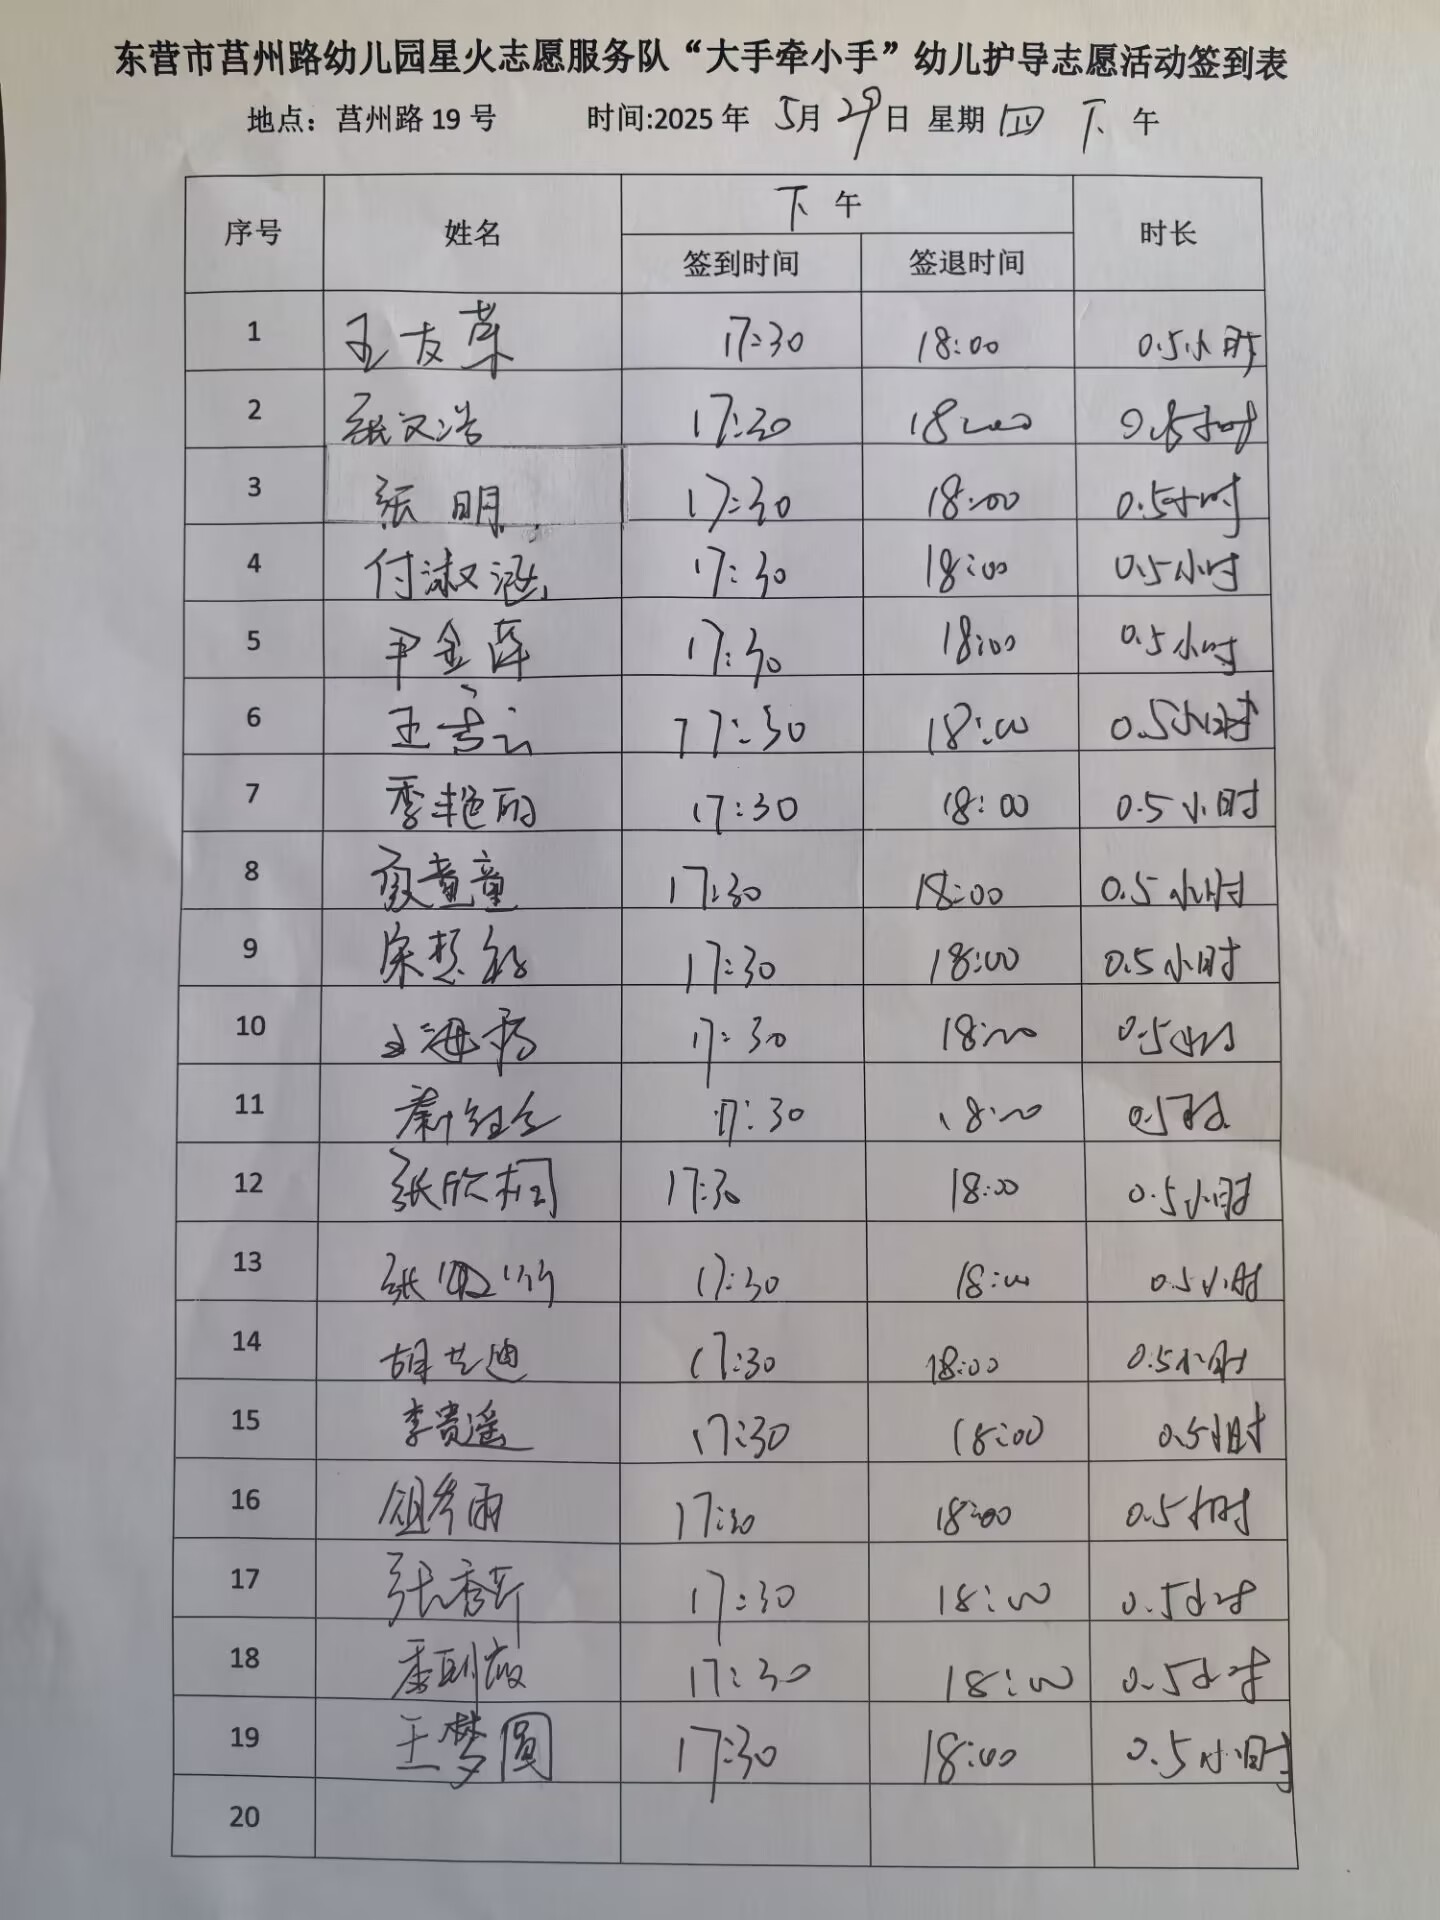 东营市莒州路幼儿园星火志愿服务队“大手牵小手”幼儿护导志愿活动签到表
地点：莒州路 19 号 时间:2025 年 5月 29日 星期 四 下 午
序号 姓名 下 午 时长
签到时间 签退时间
1 王友荣 17:30 18:00 0.5小时
2 张文浩 17:30 18:00 0.5小时
3 张明 17:30 18:00 0.5小时
4 付淑涵 17:30 18:00 0.5小时
5 尹金萍 17:30 18:00 0.5小时
6 王 17:30 18:00 0.5小时
7 季艳丽 17:30 18:00 0.5小时
8 童童 17:30 18:00 0.5小时
9 17:30 18:00 0.5小时
10 王海 17:30 18:00 0.5小时
11 17:30 18:00 0.5时
12 张欣桐 17:30 18:00 0.5小时
13 张 17:30 18:00 0.5小时
14 胡艺迪 17:30 18:00 0.5小时
15 李贵遥 17:30 18:00 0.5小时
16 雨 17:30 18:00 0.5小时
17 张秀 17:30 18:00 0.5小时
18 17:30 18:00 0.5小时
19 王梦圆 17:30 18:00 0.5小时
20